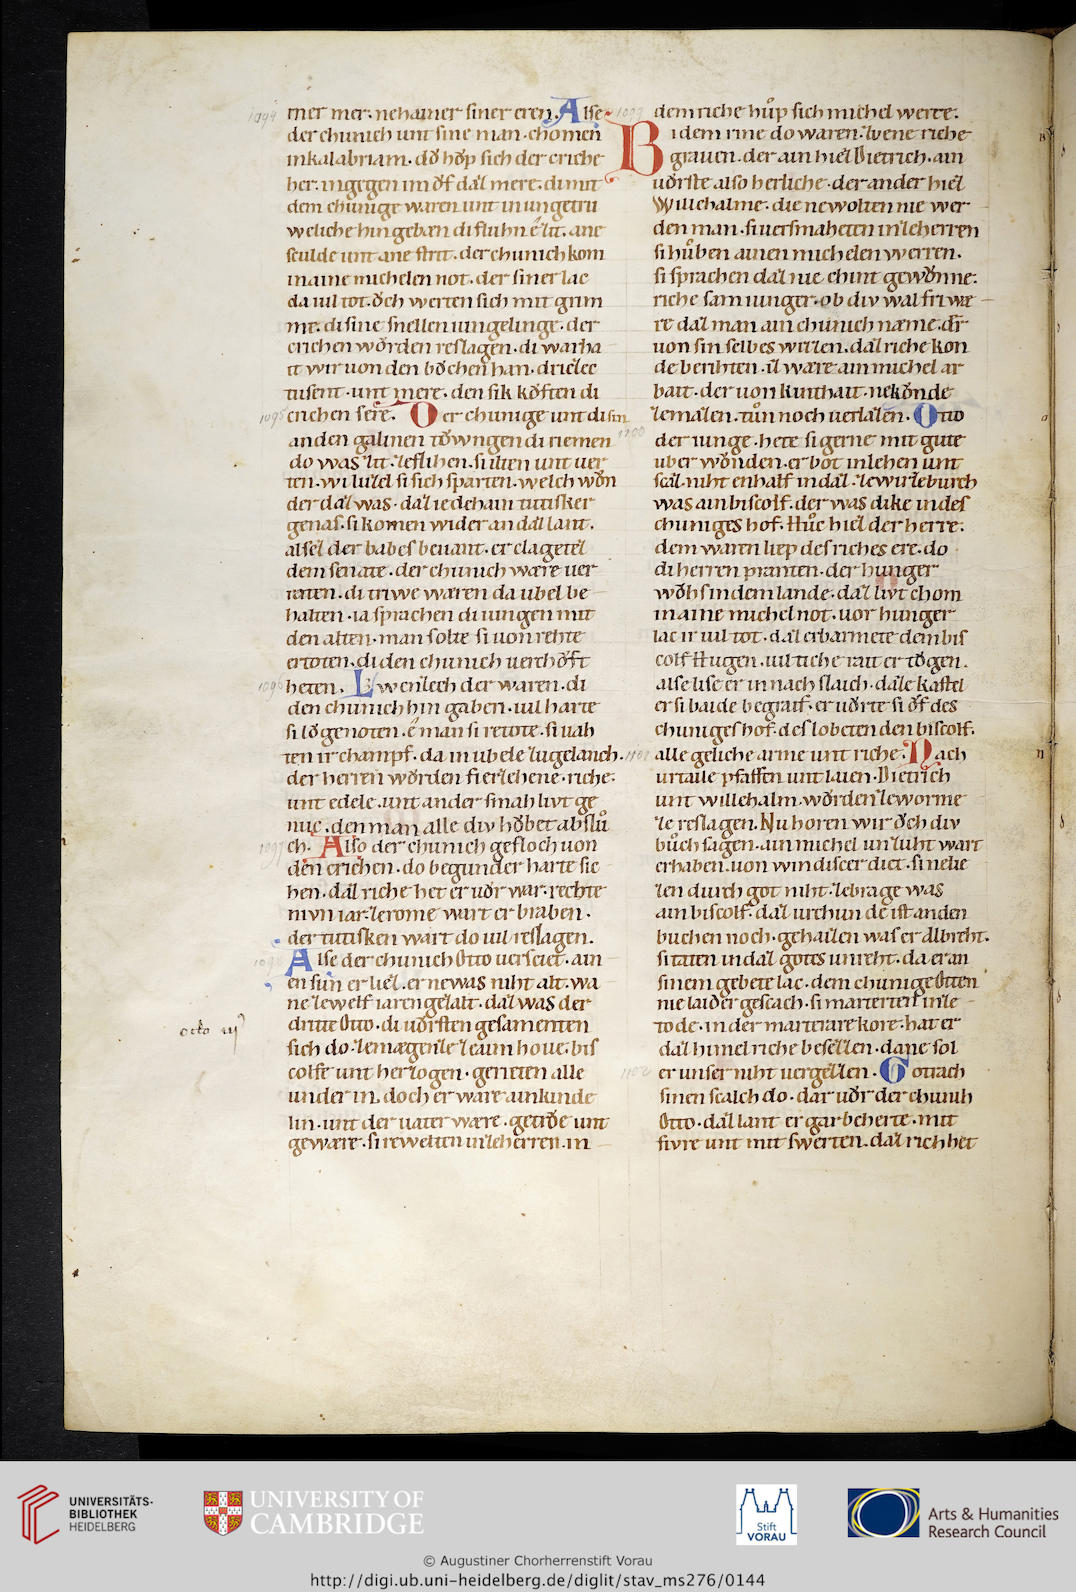 mer mer. nehainer siner eren. Alse
der chunich unt sine man. chomen
inkalabriam. dŏ hŏp sich der criche
her. ingegen im ŏf daz mere. di mit
dem chunige waren. unt in ungetru
weliche hin gebæn. di fluhn ê zit. ane
sculde unt ane strit. der chunich kom
in aine michelen not. der siner lac
da uil tot. ŏch werten sich mit grim
me. di sine snellen iungelinge. der
criehen wŏrden reslagen. di warha
it wir uon den bŏchen han. drizec
tusent. unt mere. den sik kŏften di
criehen sere. Der chunige unt di sin
an den galinen tŏwngen di riemen
do was zit. zeflihen. si ilten unt uer
ten. wi luzel si sich sparten. welch wŏn
der daz was. daz iedehain tutisker
genas. si komen wider an daz lant.
alsez der babes beuant. er clagetez
dem senate. der chunich wære uer
raten. di triwe waren da ubel be
halten. ia sprachen di iungen mit
den alten. man solte si uon rehte
ertoten. di den chunich uerchŏft
heten. Zwenzech der waren. di
den chunich hin gaben. uil harte
si lŏgenoten. ê man si retote. si uah
ten ir champf. da in ubele zugelanch.
der herren wŏrden fierzehene. riche.
unt edele. unt ander smah livt ge
nuc. den man alle div hŏbet abslŭ
ch. Also der chunich gefloch uon
den criehen. do begunder harte sie
hen. daz riche het er uŏr war. rechte
nivn iar. zerome wart er braben.
der tutisken wart do uil reslagen.
Alse der chunich Otto uersciet. ain
en sun er liez. er newas niht alt. wa
ne zewelf iaren gezalt. daz was der
dritte Otto. di uŏrsten gesamenten
otto iij
sich do. zemægenze zeaim houe. bis
colfe unt herzogen. gerieten alle
under in. doch er ware ain kinde
lin. unt der uater wære. getrŏe unt
gewære. si rewelten in zeherren. in
dem riche hŭp sich michel werre.
Bi dem rine do waren. zwene riche
grauen. der ain hiez Dietrich. ain
uŏrste also herliche. der ander hiez
Willehalme. die newolten nie wer
den man. si uersmaheten in zeherren
si hŭben ainen michelen werren.
si sprachen daz nie chint gewŏnne.
riche sam iunger. ob div wal friwæ
re daz man ain chunich næme. dr
uon sin selbes willen. daz riche kon
de berihten. iz wære ain michel ar
bait. der uon kinthait. nekŏnde
zemazen. tŭn noch uerlazen. Otto
der iunge. hete si gerne mit gute
uber wŏnden. er bot in lehen unt
scaz. niht enhalf in daz. zewirzeburch
was ain biscolf. der was dike in des
chuniges hof. Hŭc hiez der herre.
dem waren liep des riches ere. do
di herren pranten. der hunger
wŏhs in dem lande. daz livt chom
in aine michel not. uor hunger
lac ir uil tot. daz erbarmete dem bis
colf Hugen. uil tiche rait er tŏgen.
alse lise er in nach slaich. daze kastel
er si baide begraif. er uŏrte si ŏf des
chuniges hof. des lobeten den biscolf.
alle geliche arme unt riche. Nach
urtaile pfaffen unt laien. Dietrich
unt willehalm. wŏrden zeworme
ze reslagen. Nu horen wir ŏch div
bŭch sagen. ain michel unzuht wart
erhaben. uon windiscer diet. si nelie
zen durch got niht. zebrage was
ain biscolf. daz urchunde ist an den
buchen noch. gehaizen was er Albreht.
si taten in daz gotes unreht. da er an
sinem gebete lac. dem chunige Otten
nie laider gescach. si marterten in ze
tode. in der marterare kore. hat er
daz himelriche besezzen. dane sol
er unser niht uergezzen. Gotrach
sinen scalch do. dar uŏr der chunih
Otto. daz lant er gar beherte. mit
fivre unt mit swerten. daz rich het
UNIVERSITÄTS-
BIBLIOTHEK
HEIDELBERG
UNIVERSITY OF
CAMBRIDGE
Stift
VORAU
Arts & Humanities
Research Council
© Augustiner Chorherrenstift Vorau
http://digi.ub.uni-heidelberg.de/diglit/stav_ms276/0144